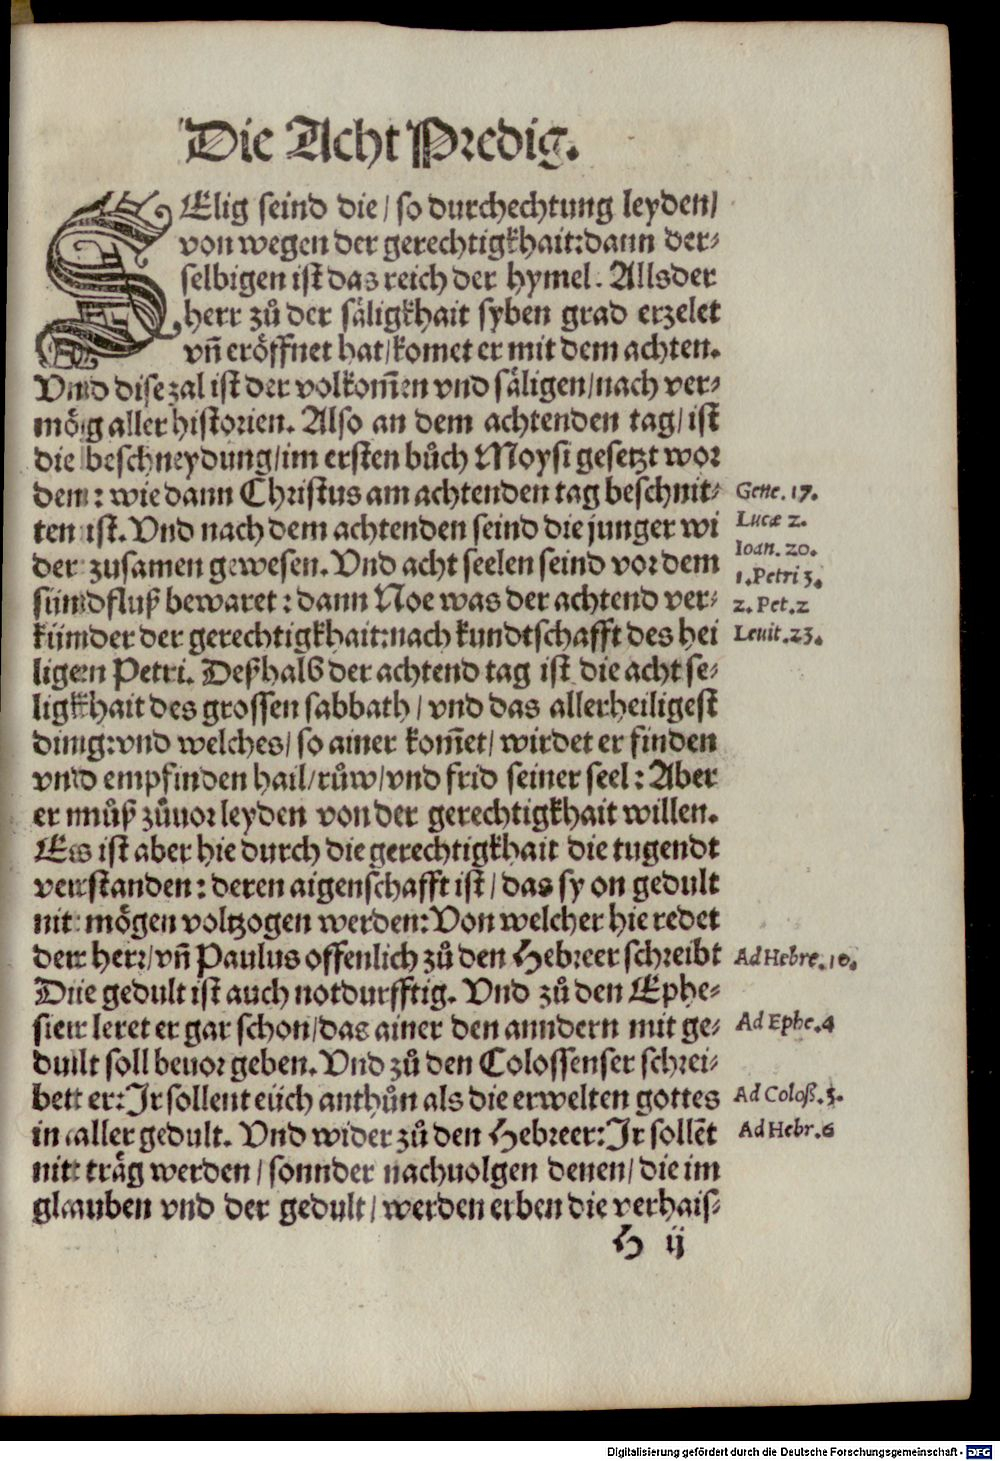 Die Acht Predig.
SElig seind die/ so durchechtung leyden/
von wegen der gerechtigkhait: dann der⸗
selbigen ist das reich der hymel. Alls der
herr zů der säligkhait syben grad erzelet
vñ eröffnet hat/ komet er mit dem achten.
Vnd dise zal ist der volkom̃en vnd säligen/ nach ver⸗
mög aller historien. Also an dem achtenden tag/ ist
die beschneydung/ im ersten bůch Moysi gesetzt wor
den: wie dann Christus am achtenden tag beschnit⸗
Gene. 17.
ten ist. Vnd nach dem achtenden seind die junger wi
Lucæ 2.
der zusamen gewesen. Vnd acht seelen seind vor dem
Ioan. 20.
1. Petri 3.
sündfluß bewaret: dann Noe was der achtend ver⸗
2. Pet. 2
künder der gerechtigkhait: nach kundtschafft des hei
Leuit. 23.
ligen Petri. Deßhalb der achtend tag ist die acht se⸗
ligkhait des grossen sabbath/ vnd das allerheiligest
ding: vnd welches/ so ainer kom̃et/ wirdet er finden
vnd empfinden hail/ růw/ vnd frid seiner seel: Aber
er můß zůuor leyden von der gerechtigkhait willen.
Es ist aber hie durch die gerechtigkhait die tugendt
verstanden: deren aigenschafft ist/ das sy on gedult
nit mögen voltzogen werden: Von welcher hie redet
der herr/ vñ Paulus offenlich zů den Hebreer schreibt
Ad Hebre. 10.
Die gedult ist auch notdurfftig. Vnd zů den Ephe⸗
sier leret er gar schon/ das ainer den anndern mit ge⸗
Ad Ephe. 4
dullt soll beuor geben. Vnd zů den Colossenser schrei⸗
bett er: Jr sollent eüch anthůn als die erwelten gottes
Ad Coloß. 3.
in aller gedult. Vnd wider zů den Hebreer: Jr sollẽt
Ad Hebr. 6
nit träg werden/ sonnder nachuolgen denen/ die im
glauben vnd der gedult/ werden erben die verhais⸗
H ij
Digitalisierung gefördert durch die Deutsche Forschungsgemeinschaft - DFG